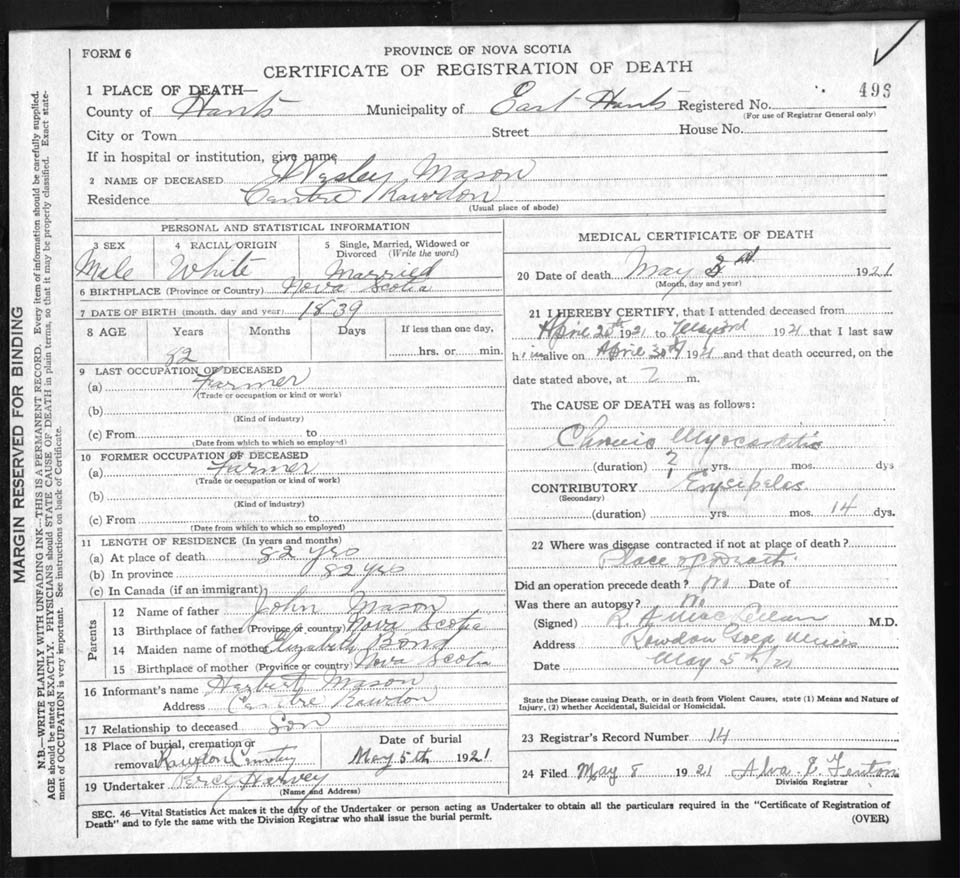 FORM 6
PROVINCE OF NOVA SCOTIA
CERTIFICATE OF REGISTRATION OF DEATH
1 PLACE OF DEATH—
County of Hants Municipality of East Hants Registered No. 496
(For use of Registrar General only)
City or Town Street House No.
If in hospital or institution, give name
2 NAME OF DECEASED Wesley Mason
Residence Centre Rawdon
(Usual place of abode)
PERSONAL AND STATISTICAL INFORMATION
3 SEX 4 RACIAL ORIGIN 5 Single, Married, Widowed or Divorced (Write the word)
Male White Married
6 BIRTHPLACE (Province or Country) Nova Scotia
7 DATE OF BIRTH (month, day and year) 1839
8 AGE Years Months Days If less than one day,
82 hrs. or min.
9 LAST OCCUPATION OF DECEASED
(a) Farmer
(Trade or occupation or kind or work)
(b)
(Kind of industry)
(c) From to
(Date from which to which so employed)
10 FORMER OCCUPATION OF DECEASED
(a) Farmer
(Trade or occupation or kind of work)
(b)
(Kind of industry)
(c) From to
(Date from which to which so employed)
11 LENGTH OF RESIDENCE (In years and months)
(a) At place of death 82 yrs
(b) In province 82 yrs
(c) In Canada (if an immigrant)
Parents
12 Name of father John Mason
13 Birthplace of father (Province or country) Nova Scotia
14 Maiden name of mother Elizabeth Bond
15 Birthplace of mother (Province or country) Nova Scotia
16 Informant's name Herbert Mason
Address Centre Rawdon
17 Relationship to deceased Son
18 Place of burial, cremation or Date of burial
removal Rawdon Cemetery May 5th 1921
19 Undertaker Percy Harvey
(Name and Address)
MEDICAL CERTIFICATE OF DEATH
20 Date of death May 2nd 1921
(Month, day and year)
21 I HEREBY CERTIFY, that I attended deceased from
April 20th 1921 to May 1921 that I last saw
h im alive on April 30th 1921 and that death occurred, on the
date stated above, at 2 m.
The CAUSE OF DEATH was as follows:
Chronic Myocarditis
(duration) 2 yrs. mos. dys
CONTRIBUTORY Erysipelas
(Secondary)
(duration) yrs. mos. 14 dys.
22 Where was disease contracted if not at place of death?
Place of Death.
Did an operation precede death? No Date of
Was there an autopsy? No
(Signed) R. A. M.D.
Address Rawdon Gold Mines
Date May 5th/21
State the Disease causing Death, or in death from Violent Causes, state (1) Means and Nature of
Injury, (2) whether Accidental, Suicidal or Homicidal.
23 Registrar's Record Number 14
24 Filed May 8 1921 Alva E. Fenton
Division Registrar
SEC. 46—Vital Statistics Act makes it the duty of the Undertaker or person acting as Undertaker to obtain all the particulars required in the "Certificate of Registration of
Death" and to fyle the same with the Division Registrar who shall issue the burial permit. (OVER)
MARGIN RESERVED FOR BINDING
N.B.—WRITE PLAINLY WITH UNFADING INK—THIS IS A PERMANENT RECORD. Every item of information should be carefully supplied.
AGE should be stated EXACTLY. PHYSICIANS should STATE CAUSE OF DEATH in plain terms, so that it may be properly classified. Exact state-
ment of OCCUPATION is very important. See instructions on back of Certificate.